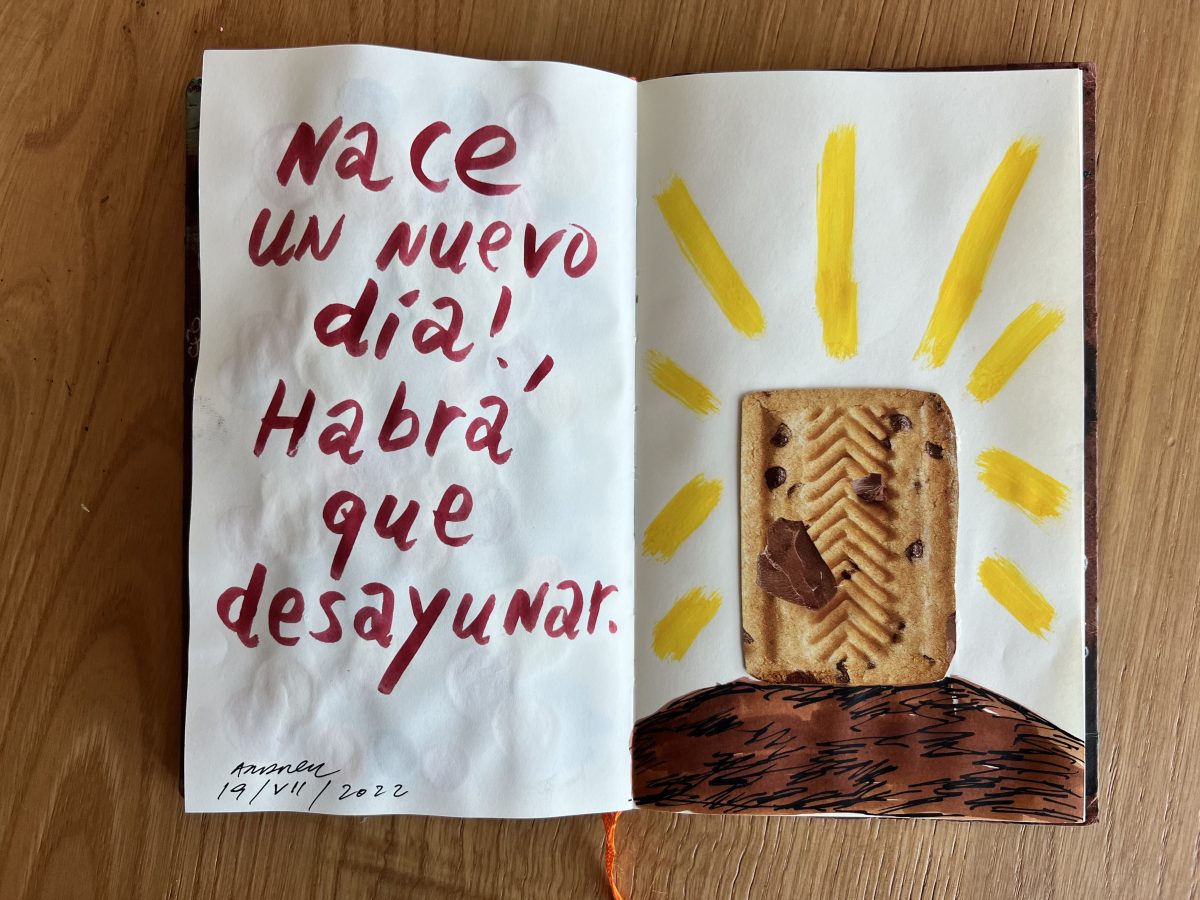 Nace
un nuevo
día!
Habrá
que
desayunar.
Andreu
19/VII/2022